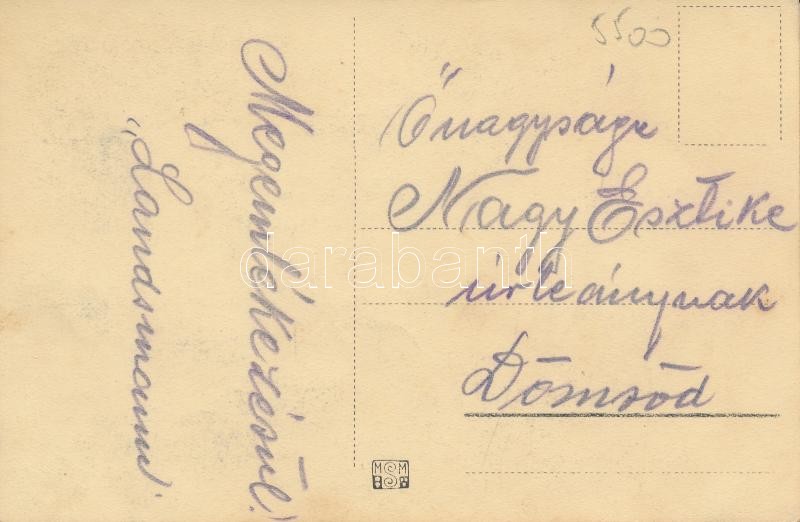 Megemlékezésül!
„Landsmann"
5500
Őnagysága
Nagy Esztike
úrleánynak
Dömsöd
darabanth
M M